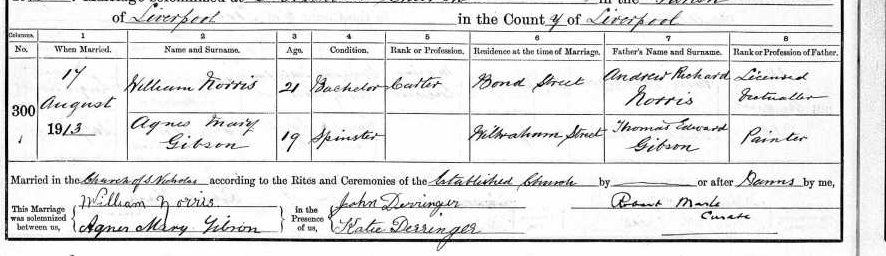 in the Parish
of Liverpool in the County of Liverpool
Columns. 1 2 3 4 5 6 7 8
No. When Married. Name and Surname. Age. Condition. Rank or Profession. Residence at the time of Marriage. Father's Name and Surname. Rank or Profession of Father.
17 William Norris 21 Bachelor Carter Bond Street Andrew Richard Licensed
300 August Norris Victualler
1913 Agnes Mary 19 Spinster Wilbraham Street Thomas Edward Painter
Gibson Gibson
Married in the Church of S Nicholas according to the Rites and Ceremonies of the Established Church by or after Banns by me,
This Marriage was solemnized between us, William Norris in the Presence of us, John Derringer
Agnes Mary Gibson Katie Derringer Curate